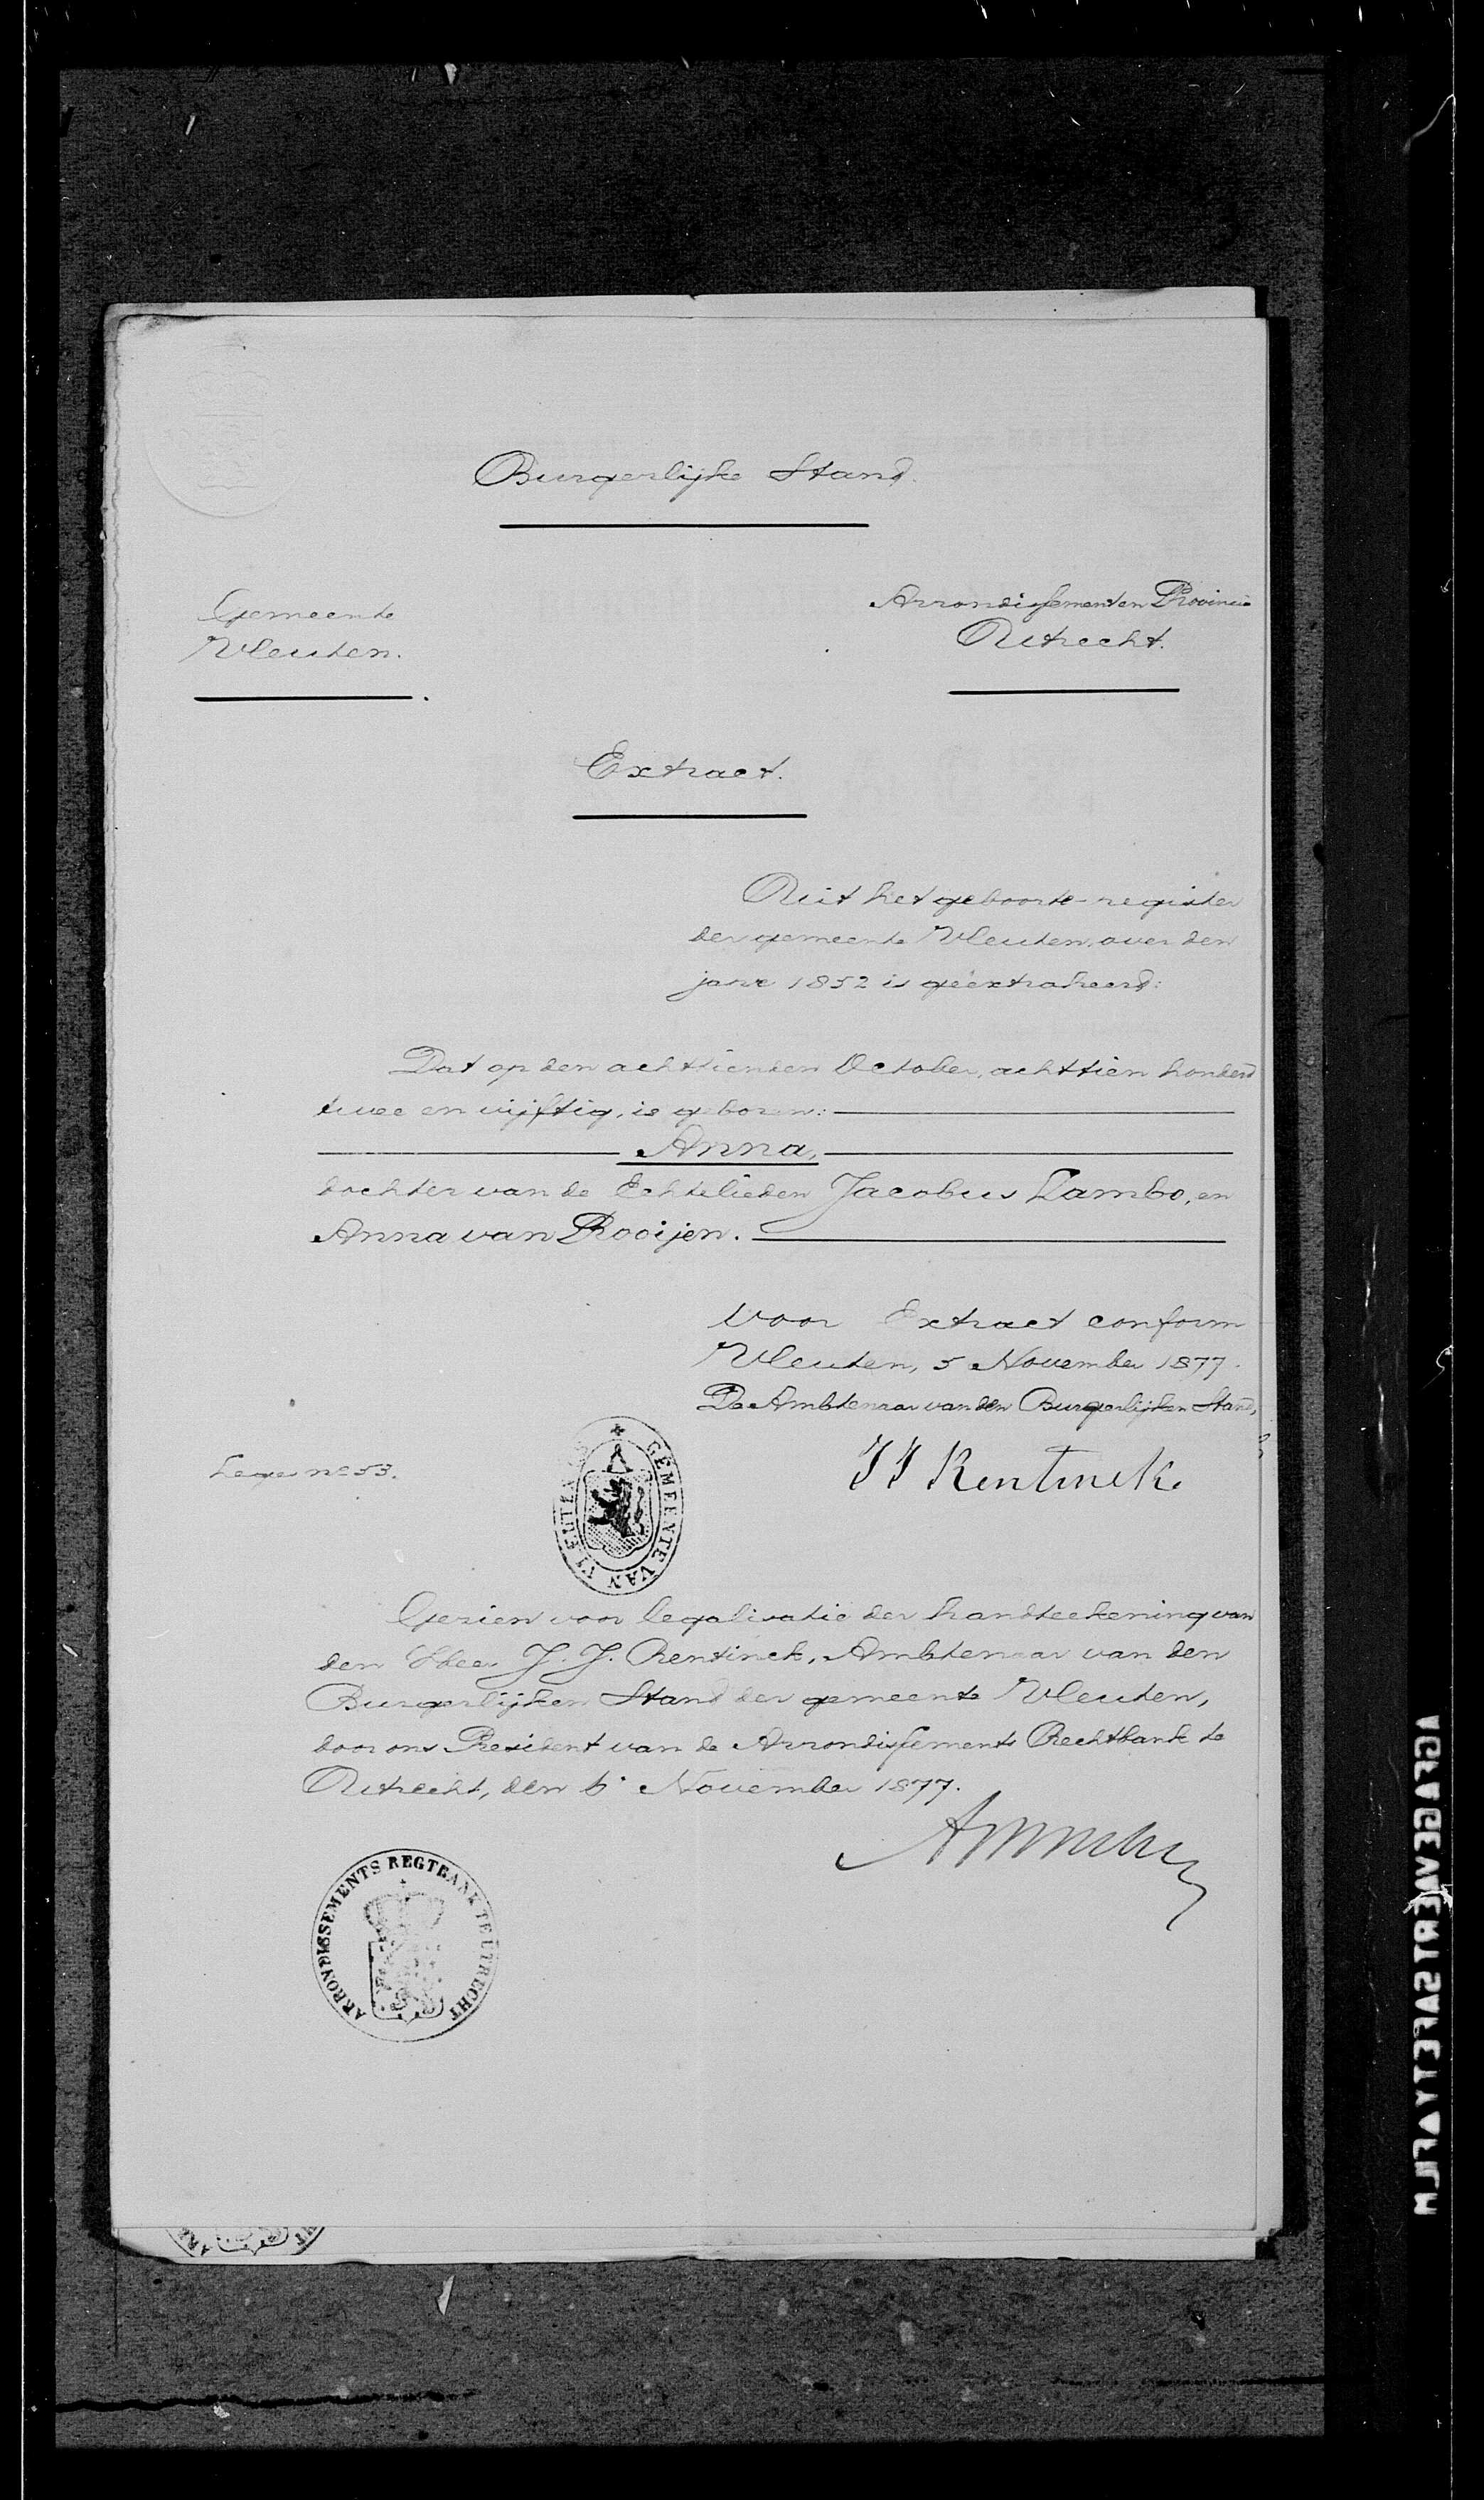 Burgerlijke Stand.
Gemeente
Vleuten.
Arrondissement en Provincie
Utrecht.
Extract.
Uit het geboorte-register
der gemeente Vleuten, over den
jare 1852 is geëxtraheerd:
Dat op den achttienden October, achttien honderd
twee en vijftig, is geboren:
Anna,
dochter van de Echtelieden Jacobus Lambo, en
Anna van Rooijen.
Voor Extract conform
Vleuten, 5 November 1877.
De Ambtenaar van den Burgerlijken Stand,
JJ Rentinck.
Leges no 53.
GEMEENTE VAN VLEUTEN
Gezien voor legalisatie der handteekening van
den Heer J. J. Rentinck, Ambtenaar van den
Burgerlijken Stand der gemeente Vleuten,
door ons President van de Arrondissements Rechtbank te
Utrecht, den 6 November 1877.
ARRONDISSEMENTS REGTBANK TE UTRECHT